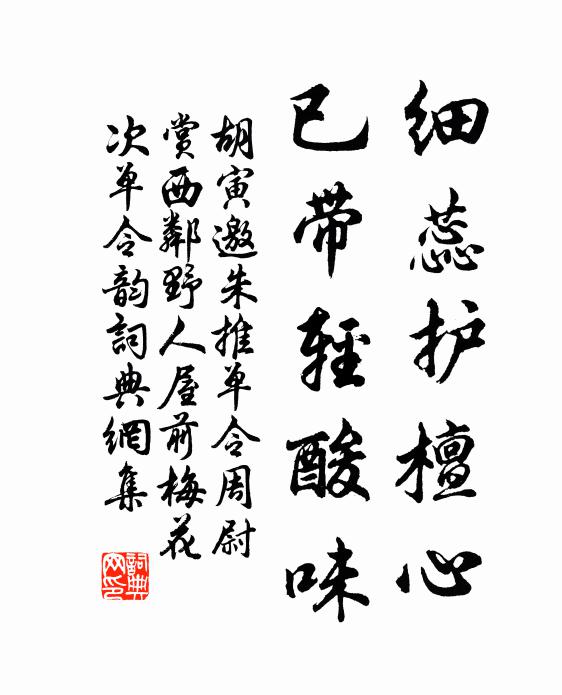 细蕊护檀心
已带轻酸味
胡寅邀朱推单令周尉
赏西邻野人屋前梅花
次单令韵词典網集
詞典
网印